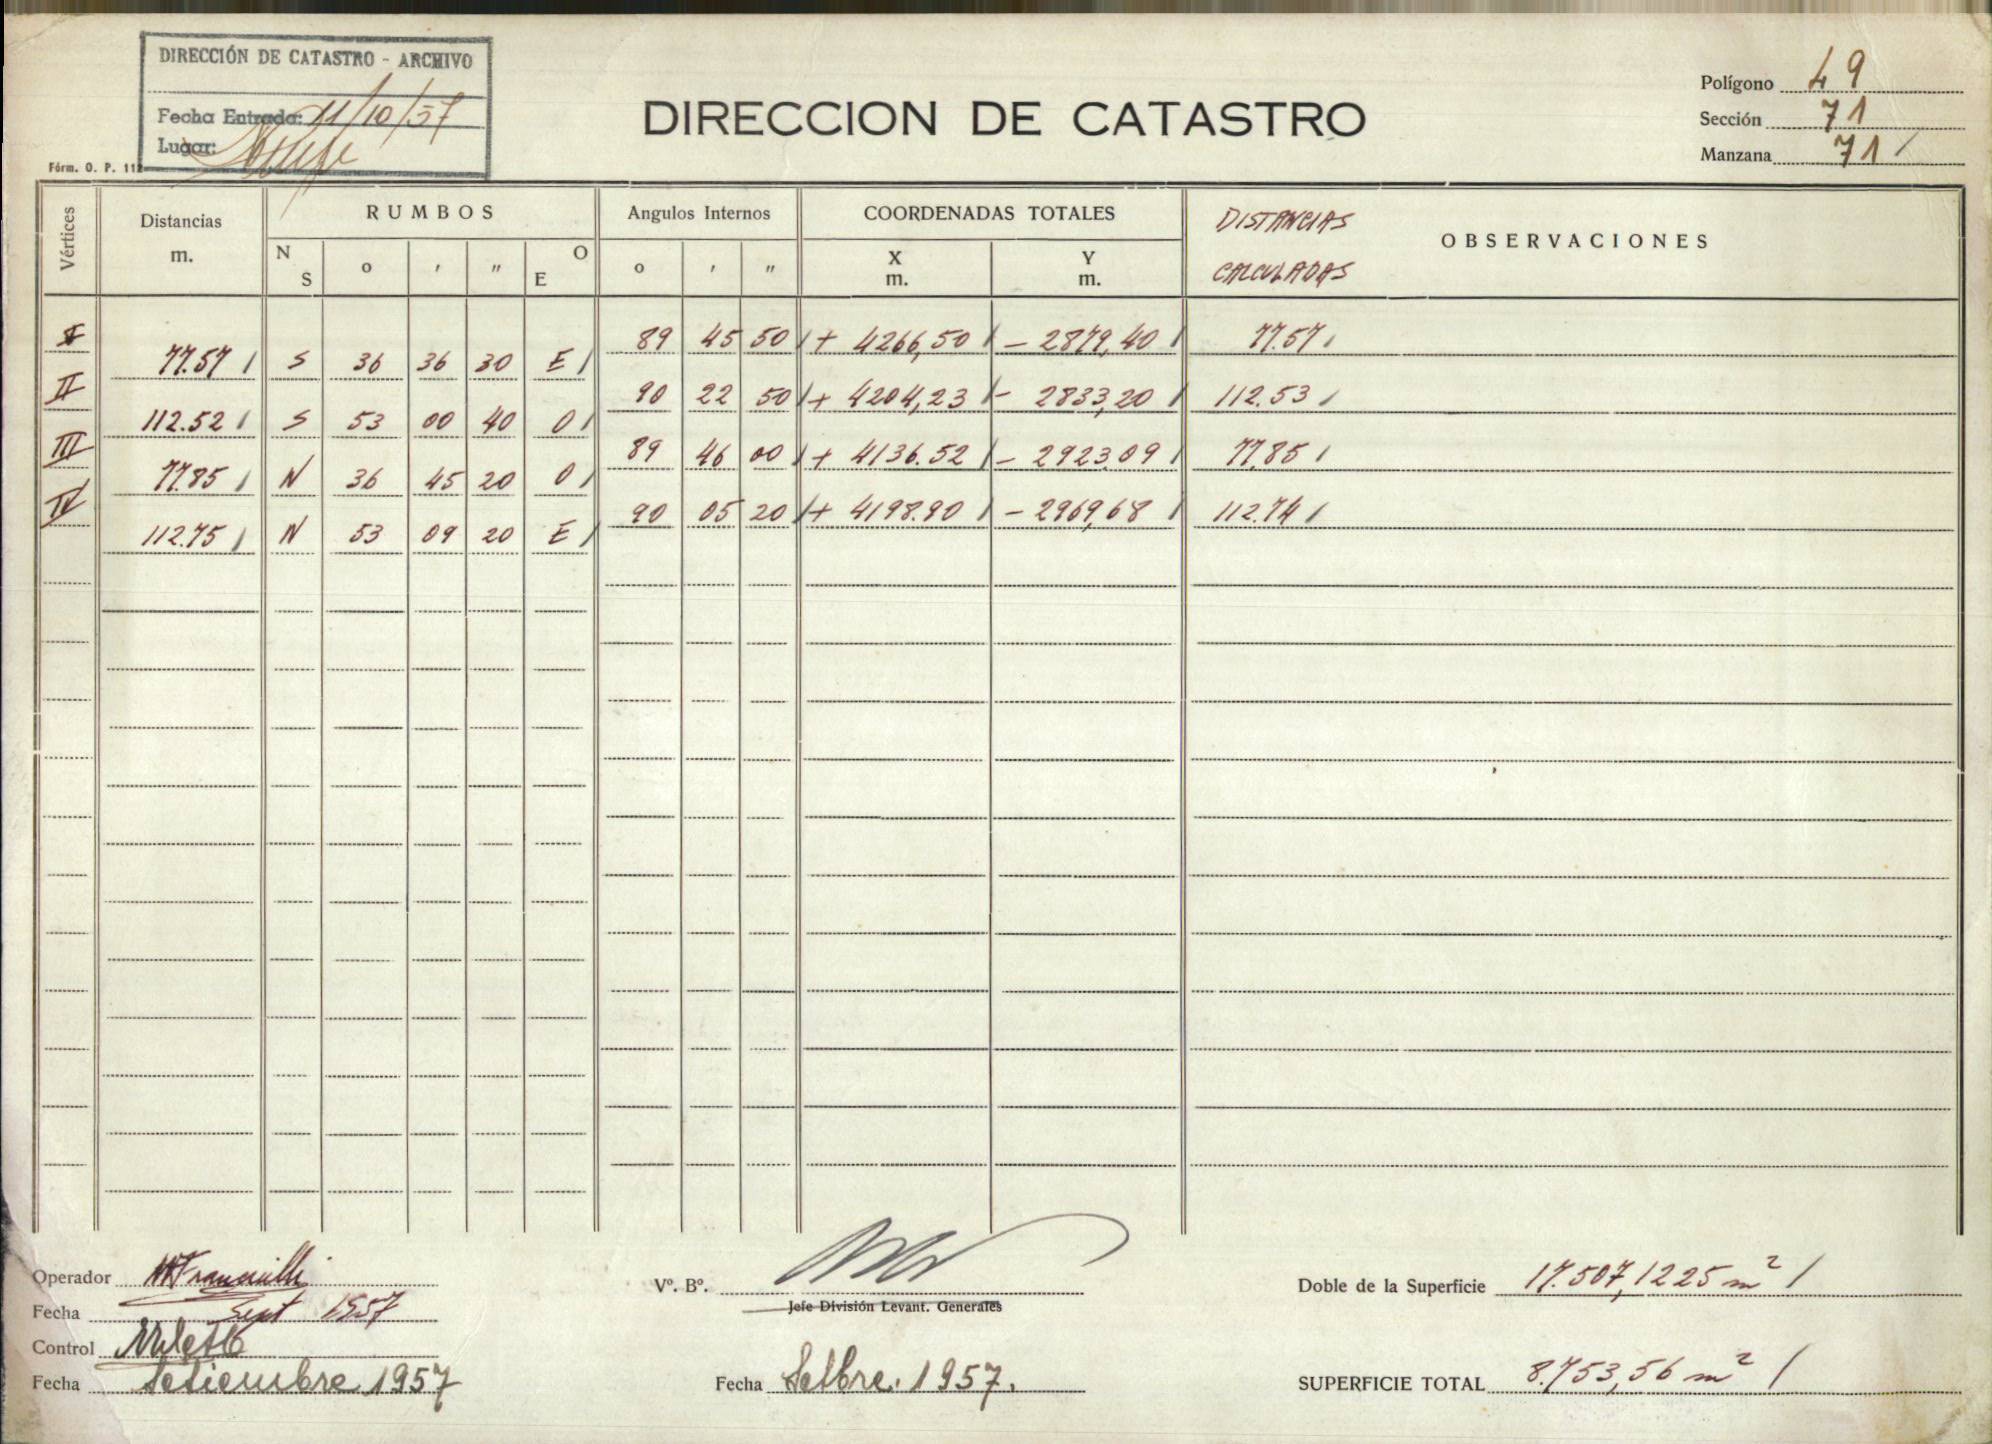 DIRECCIÓN DE CATASTRO - ARCHIVO
Fecha Entrada: 11/10/57
Lugar:
Fórm. O. P. 112
DIRECCION DE CATASTRO
Polígono 49
Sección 71
Manzana 71 /
Vértices
Distancias
m.
RUMBOS
N S o ' " E O
Angulos Internos
o ' "
COORDENADAS TOTALES
X m. Y m.
DISTANCIAS
CALCULADAS
OBSERVACIONES
I 89 45 50 / + 4266,50 / - 2879,40 / 77.57 /
77.57 / S 36 36 30 E /
II 90 22 50 / + 4204,23 / - 2833,20 / 112.53 /
112.52 / S 53 00 40 O /
III 89 46 00 / + 4136.52 / - 2923.09 / 77.85 /
77.85 / N 36 45 20 O /
IV 90 05 20 / + 4198.90 / - 2969,68 / 112.74 /
112.75 / N 53 09 20 E /
Operador
Fecha Sept 1957
Control
Fecha Setiembre 1957
Vº. Bº.
Jefe División Levant. Generales
Fecha Setbre. 1957.
Doble de la Superficie 17.507,1225 m² /
SUPERFICIE TOTAL 8.753,56 m² /